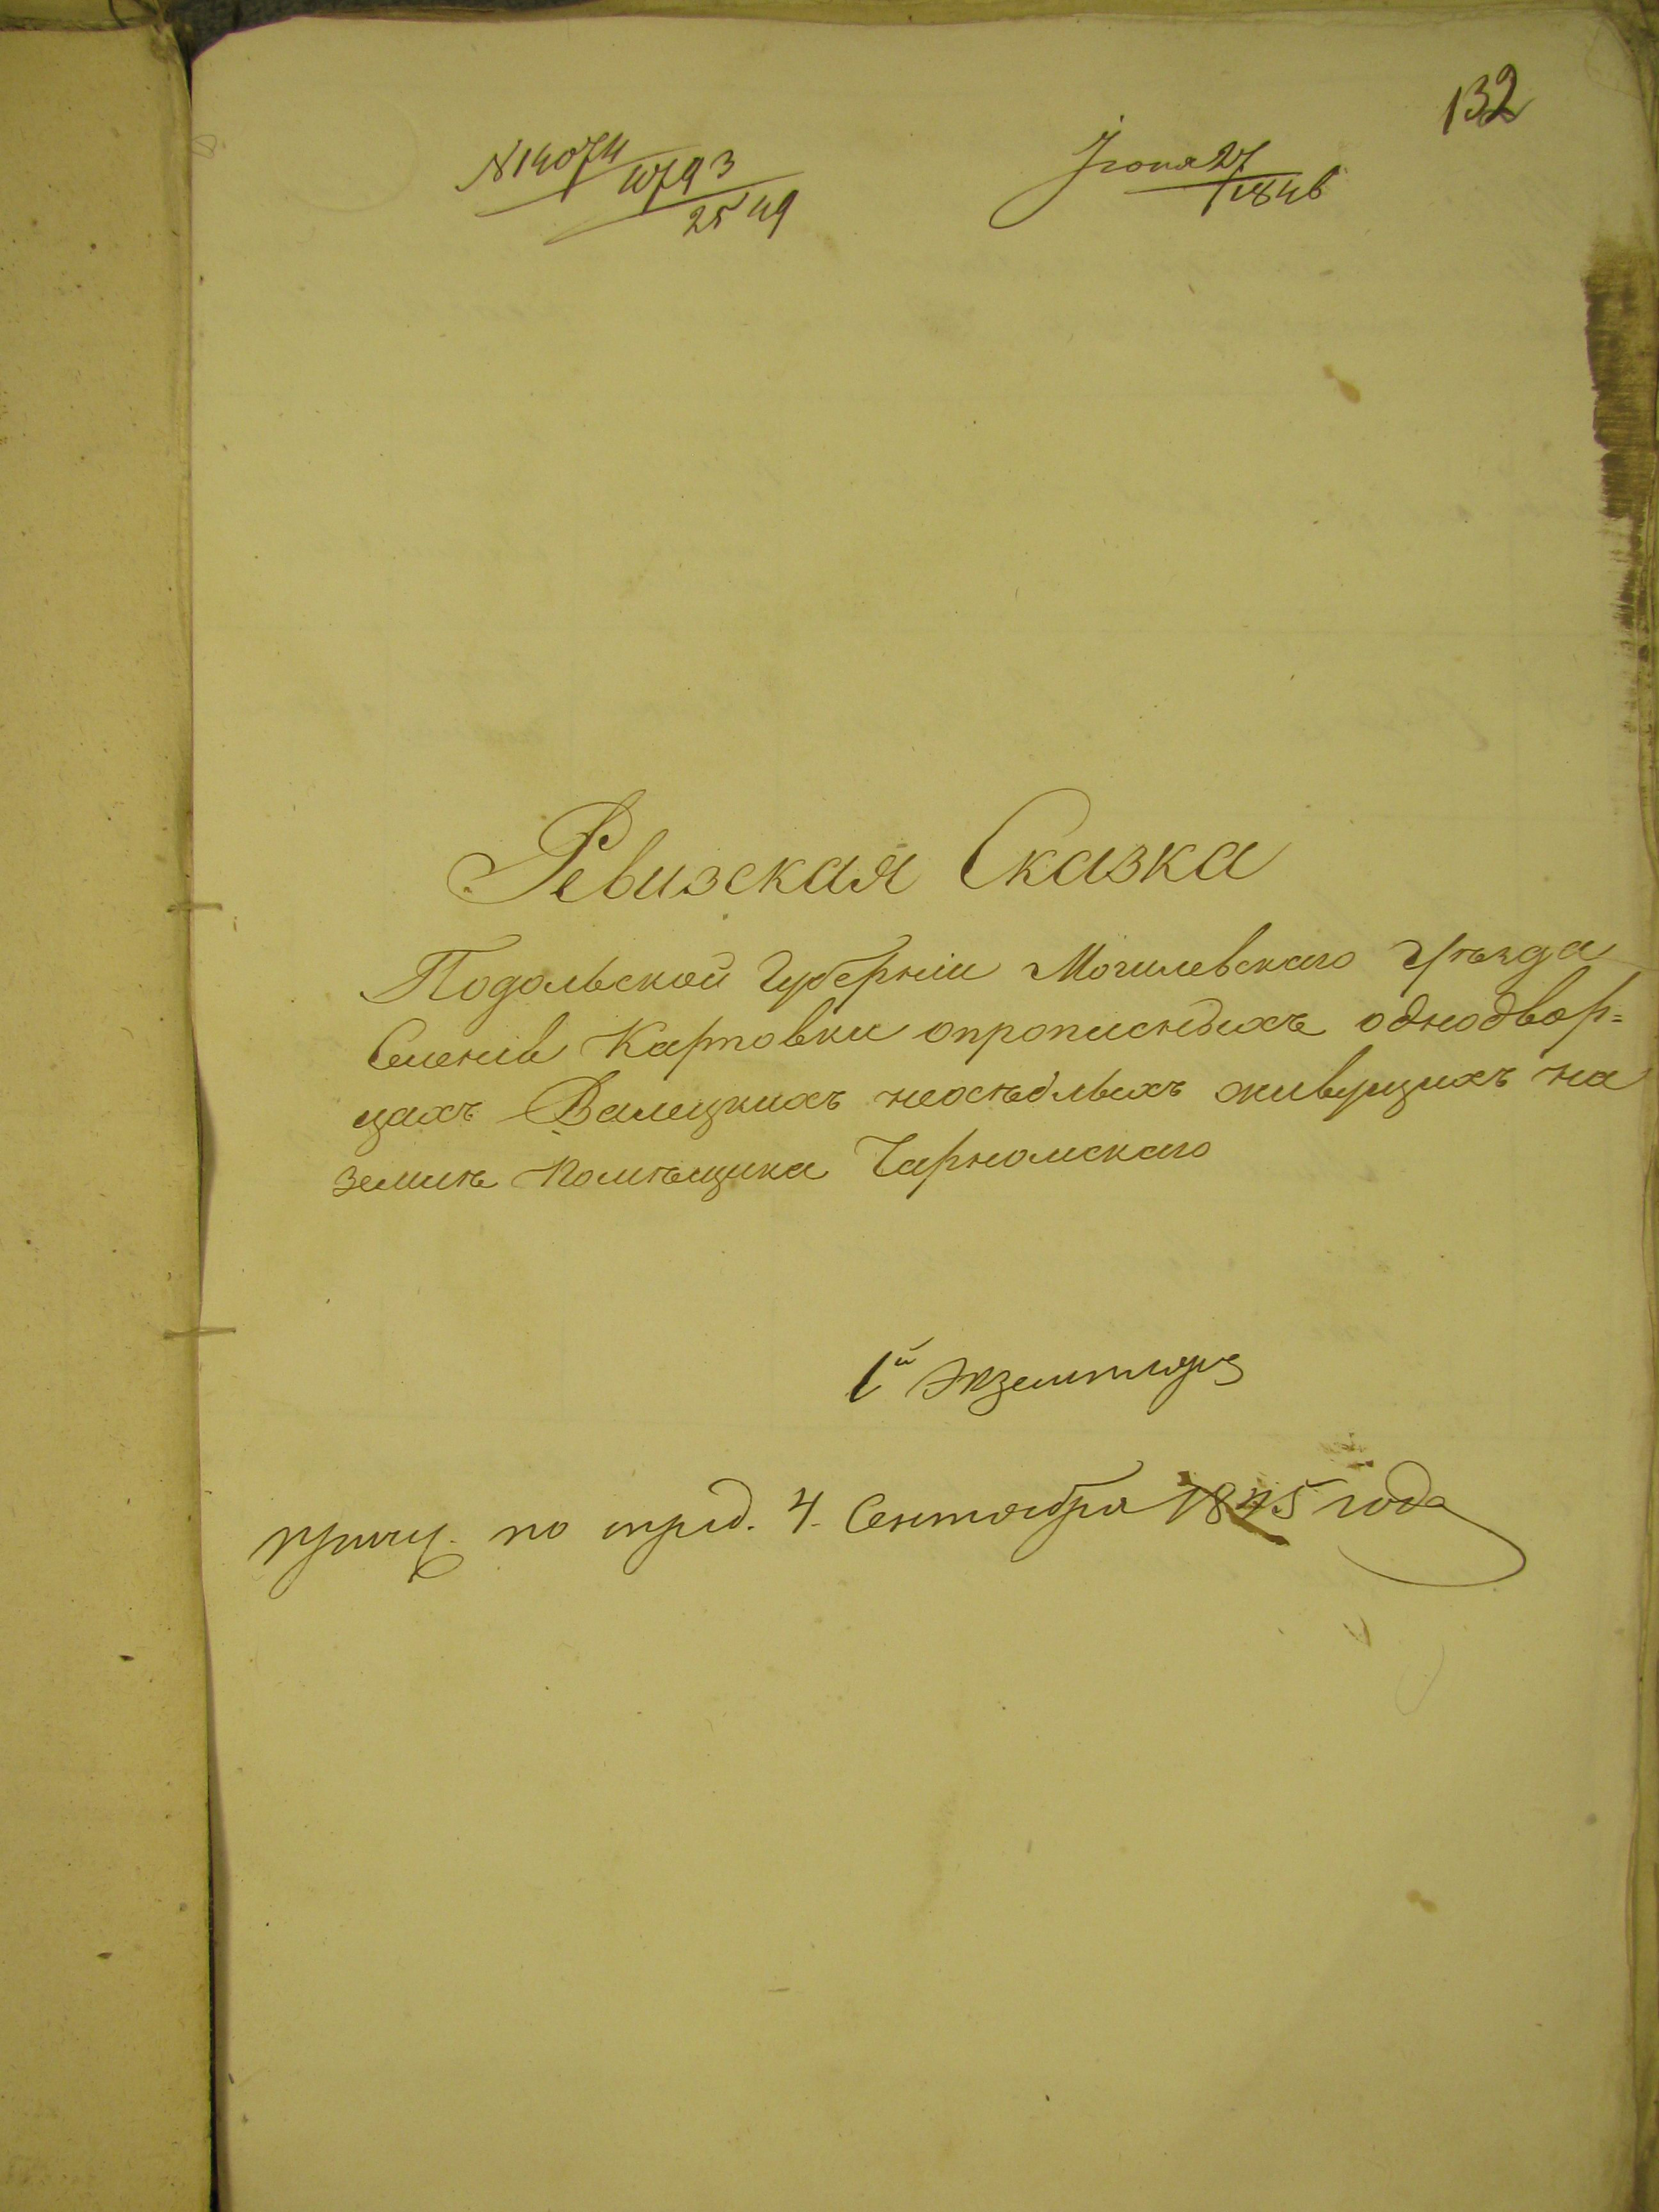 132
N 14074
10793
2549
Іюня 27
1846
Ревизская Сказка
Подольской Губерніи Могилевскаго Уѣзда
Селенія Карповки опрописныхъ однодвор=
цахъ Валецкихъ неосѣдлыхъ живущихъ на
землѣ Помѣщика Чарномскаго
1й Экземпляръ
по 4. Сентября 1845 года